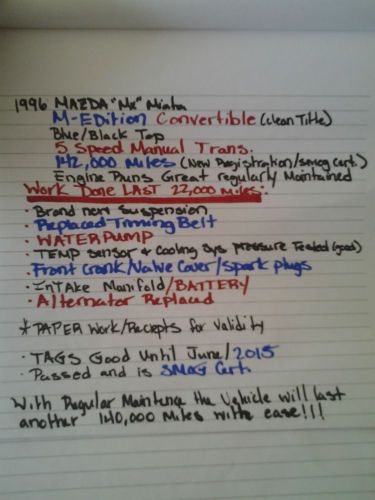 1996 MAZDA "Mx" Miata
M-Edition Convertible (clean Title)
Blue/Black Top
5 Speed Manual Trans.
142,000 Miles (New Registration/smog cert.)
Engine Runs Great regularly Maintained
Work Done LAST 22,000 Miles:
· Brand new suspension
· Replaced Timming Belt
· WATERPUMP
· TEMP sensor & Cooling Sys pressure Tested (good)
· Front Crank/Valve Cover/spark plugs
· InTake Manifold/BATTERY
· Alternator Replaced
* PAPER Work/Reciepts for Validity
· TAGS Good Until June/2015
· Passed and is SMOG Cert.
With Regular Maintence the Vehicle will last
another 140,000 Miles with ease!!!